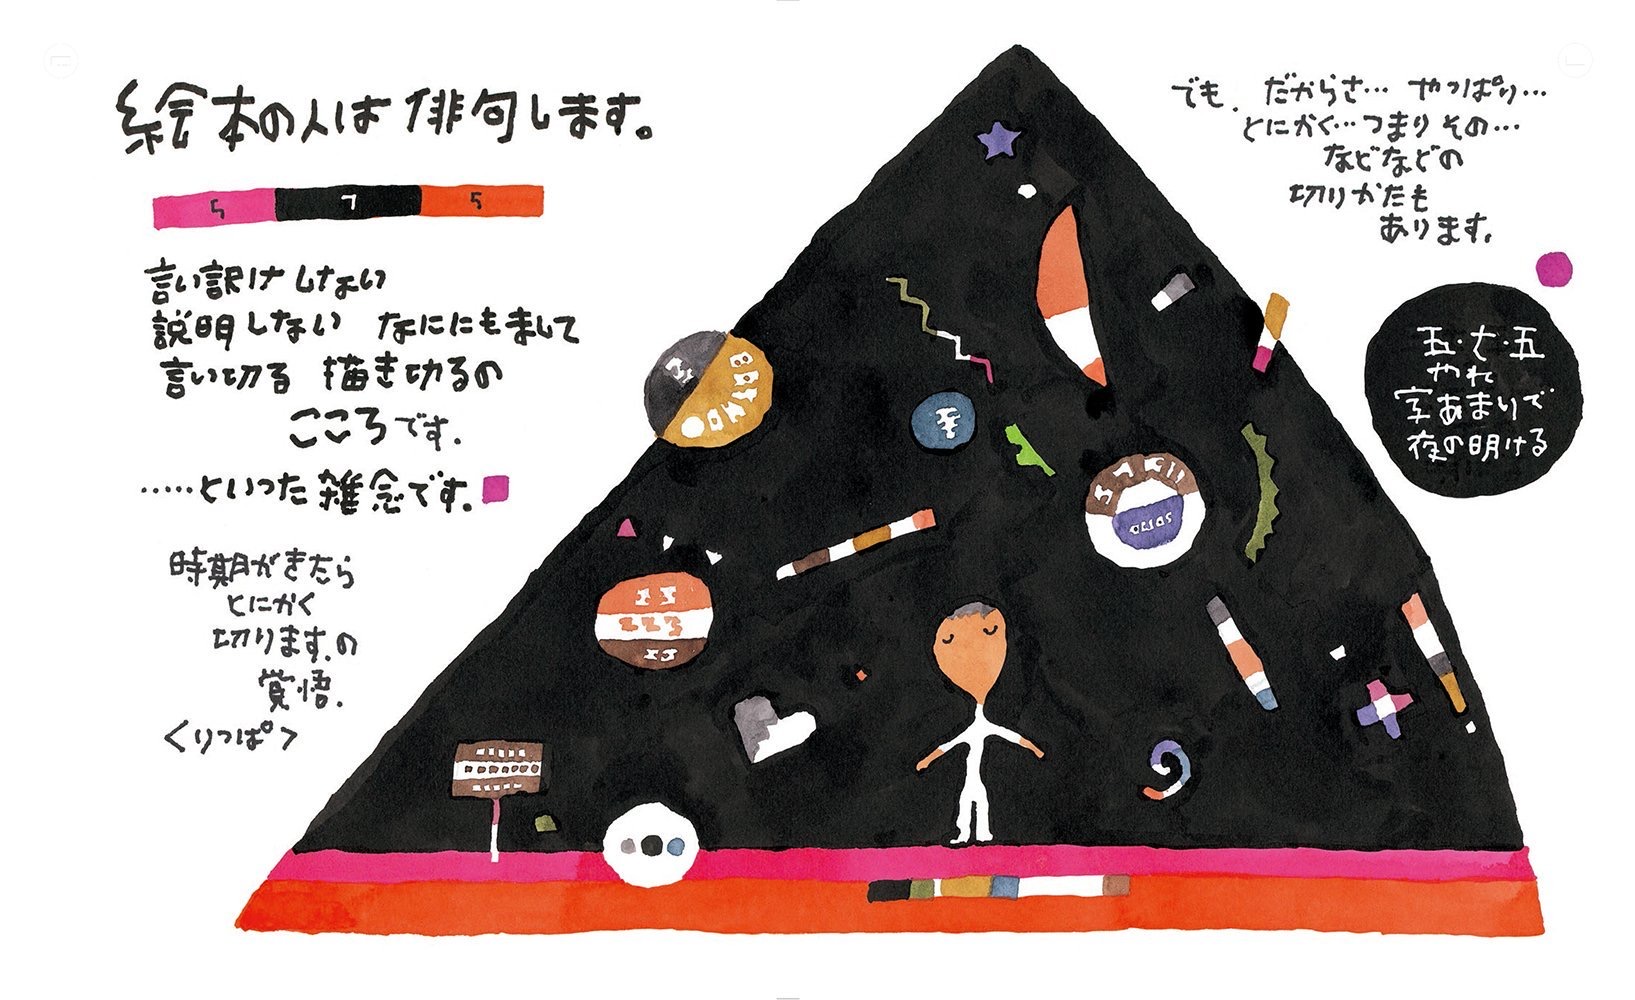 絵本の人は 俳句します。
5 7 5
言い訳け しない
説明しない なににもまして
言い切る 描き切るの
こころです.
……といった 雑念です.
時期がきたら
とにかく
切ります.の
覚悟.
<りっぱ>
でも. だからさ… やっぱり…
とにかく…つまり その…
などなどの
切りかたも
あります.
五・七・五
やれ
字あまりで
夜の明ける